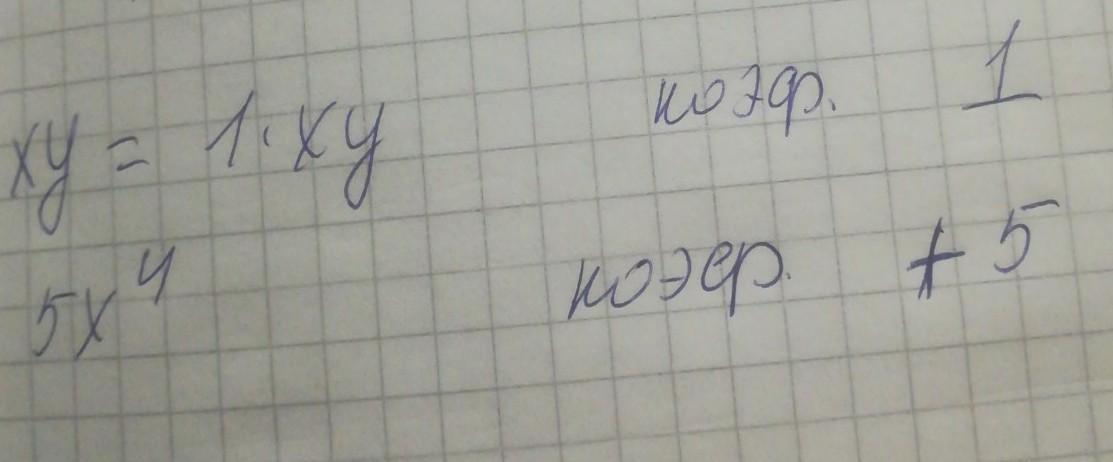 xy = 1·xy коэф. 1
5x⁴ коэф. +5